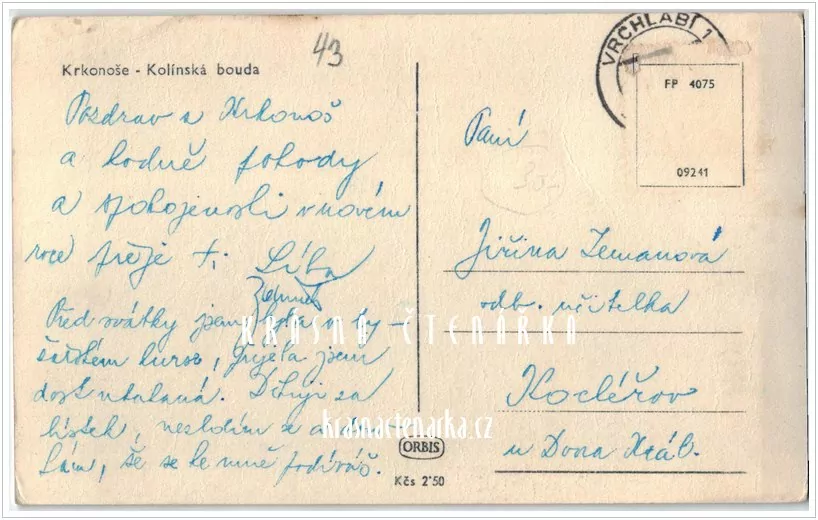 43
VRCHLABÍ 1
Krkonoše - Kolínská bouda
FP 4075
09241
Pozdrav z Krkonoš
a hodně pohody
a spokojenosti v novém
roce přeje
Líba
Před svátky jsem byla v ly-
žařském kurse, přijela jsem
dost utahaná. Děkuji za
lístek,
že se ke mně podíváš.
Paní
30,-
Jiřina Zemanová
odb. učitelka
Kocléřov
u Dvora Král.
KRÁSNÁ ČTENÁŘKA
krasnactenarka.cz
ORBIS
Kčs 2'50